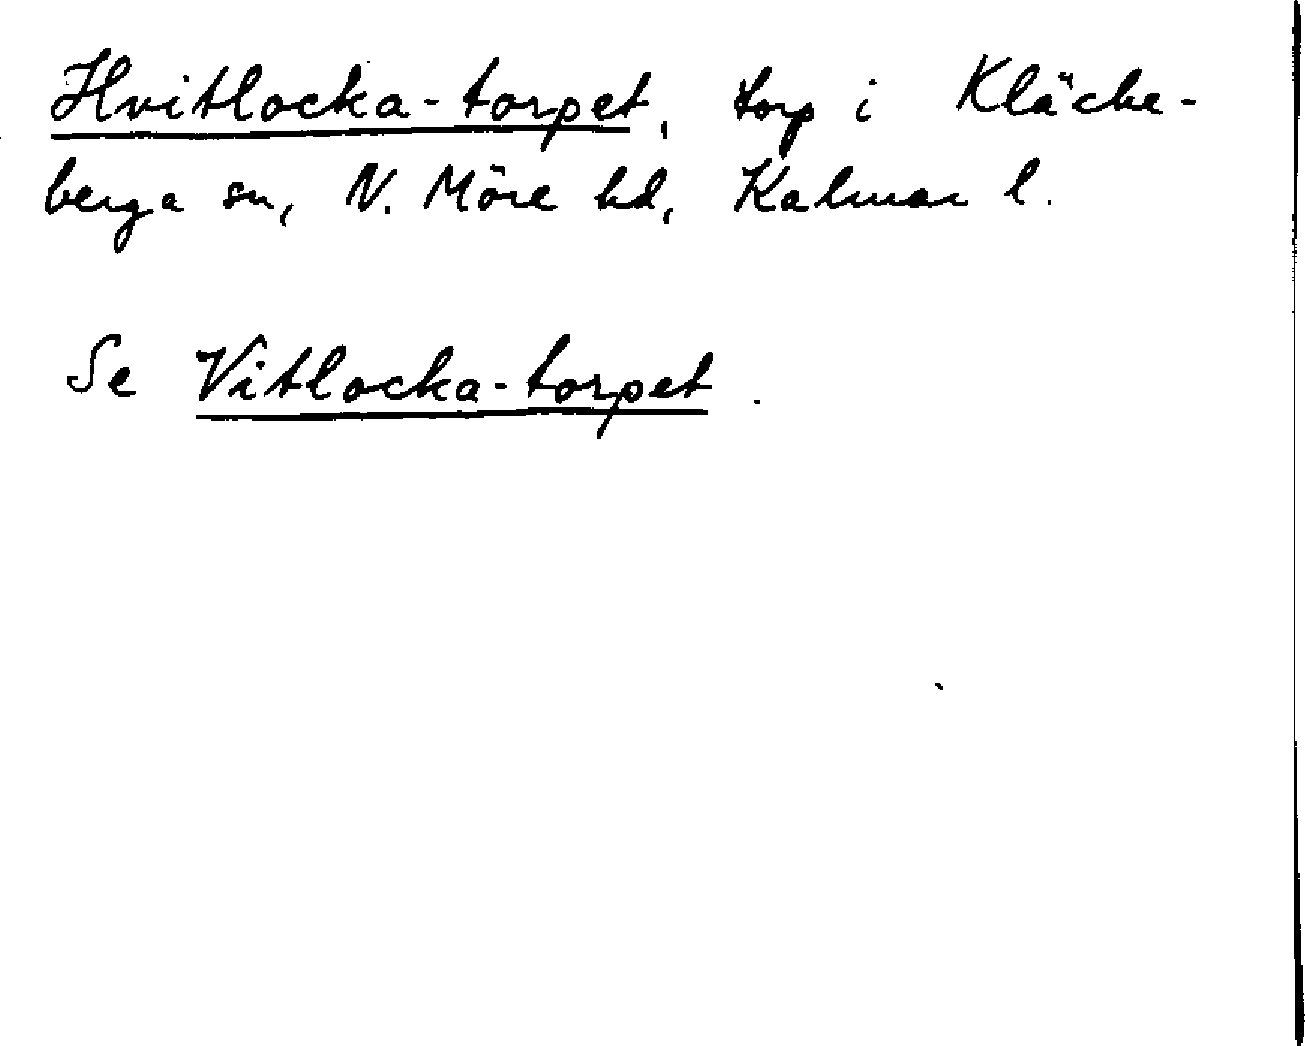 Hvitlocka-torpet, torp i Kläcke-
berga sn, N. Möre hd, Kalmar l.
Se Vitlocka-torpet.